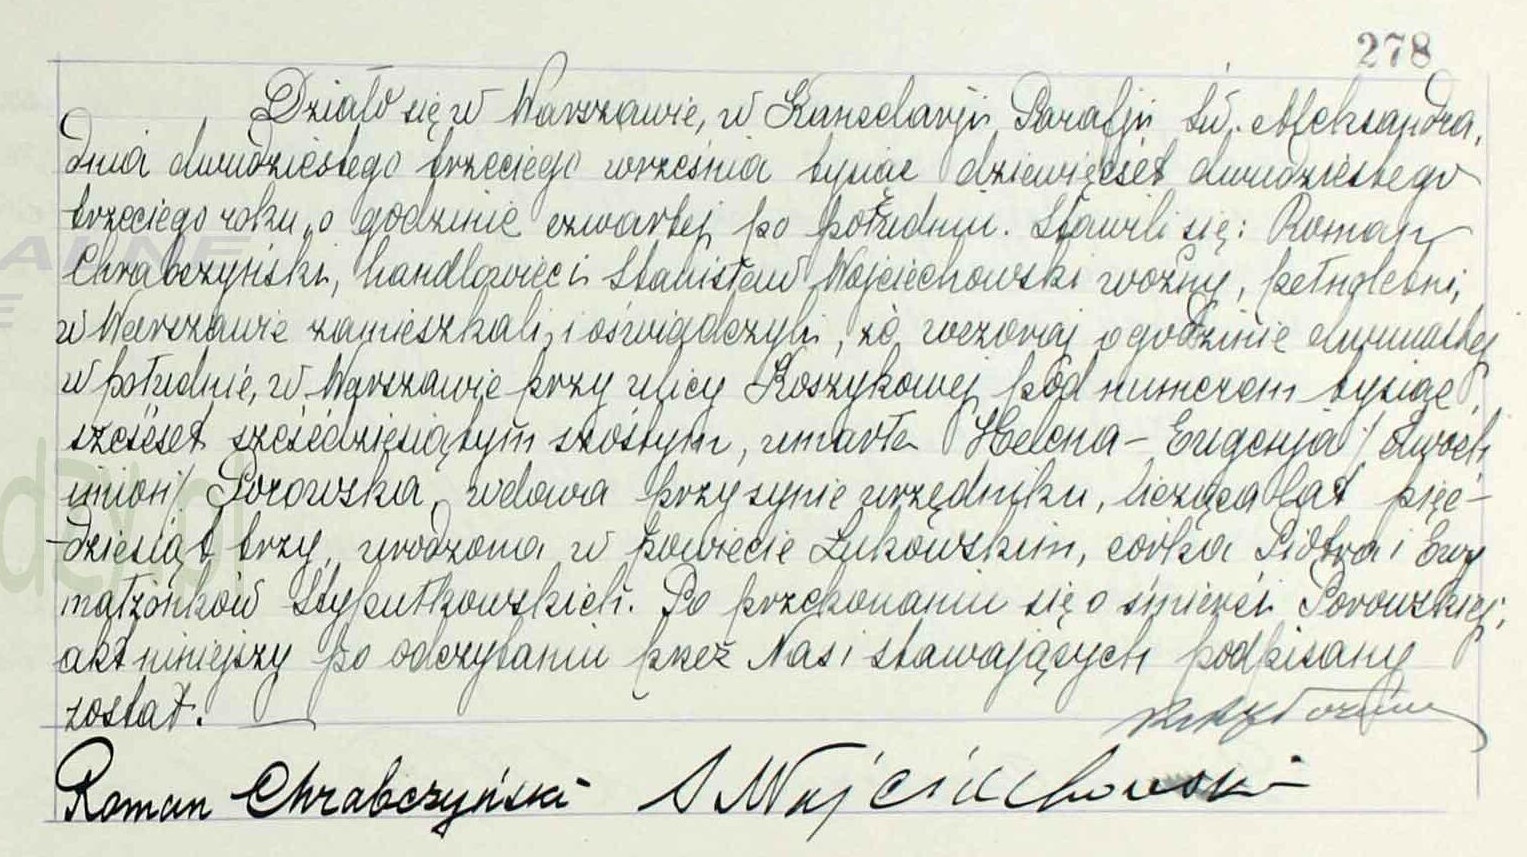 278
Działo się w Warszawie, w Kancelarji Parafji Św. Aleksandra,
dnia dwudziestego trzeciego września tysiąc dziewięćset dwudziestego
trzeciego roku, o godzinie czwartej po południu. Stawili się: Roman
Chrabczyński, handlowiec i Stanisław Wojciechowski woźny, pełnoletni,
w Warszawie zamieszkali, i oświadczyli, że wczoraj o godzinie dwunastej
w południe, w Warszawie przy ulicy Koszykowej pod numerem tysiąc
sześćset sześćdziesiątym szóstym, umarła Helena-Eugenja / dwóch
imion / Porowska, wdowa przy synie urzędniku, licząca lat pięć-
-dziesiąt trzy, urodzona w powiecie Łukowskim, córka Piotra i Ewy
małżonków Stypułkowskich. Po przekonaniu się o śmierci Porowskiej,
akt niniejszy po odczytaniu przez Nas i stawających podpisany
został.
Roman Chrabczyński S Wojciechowski